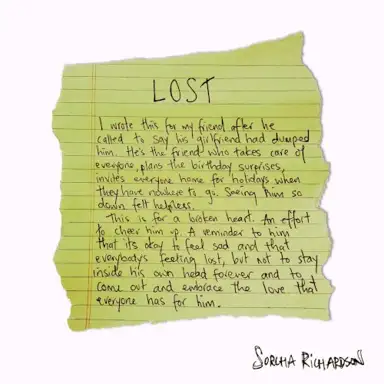 LOST
I wrote this for my friend after he
called to say his girlfriend had dumped
him. He's the friend who takes care of
everyone, plans the birthday surprises,
invites everyone home for holidays when
they have nowhere to go. Seeing him so
down felt helpless.
This is for a broken heart. An effort
to cheer him up. A reminder to him
that it's okay to feel sad and that
everybody's feeling lost, but not to stay
inside his own head forever and to
come out and embrace the love that
everyone has for him.
SORCHA RICHARDSON